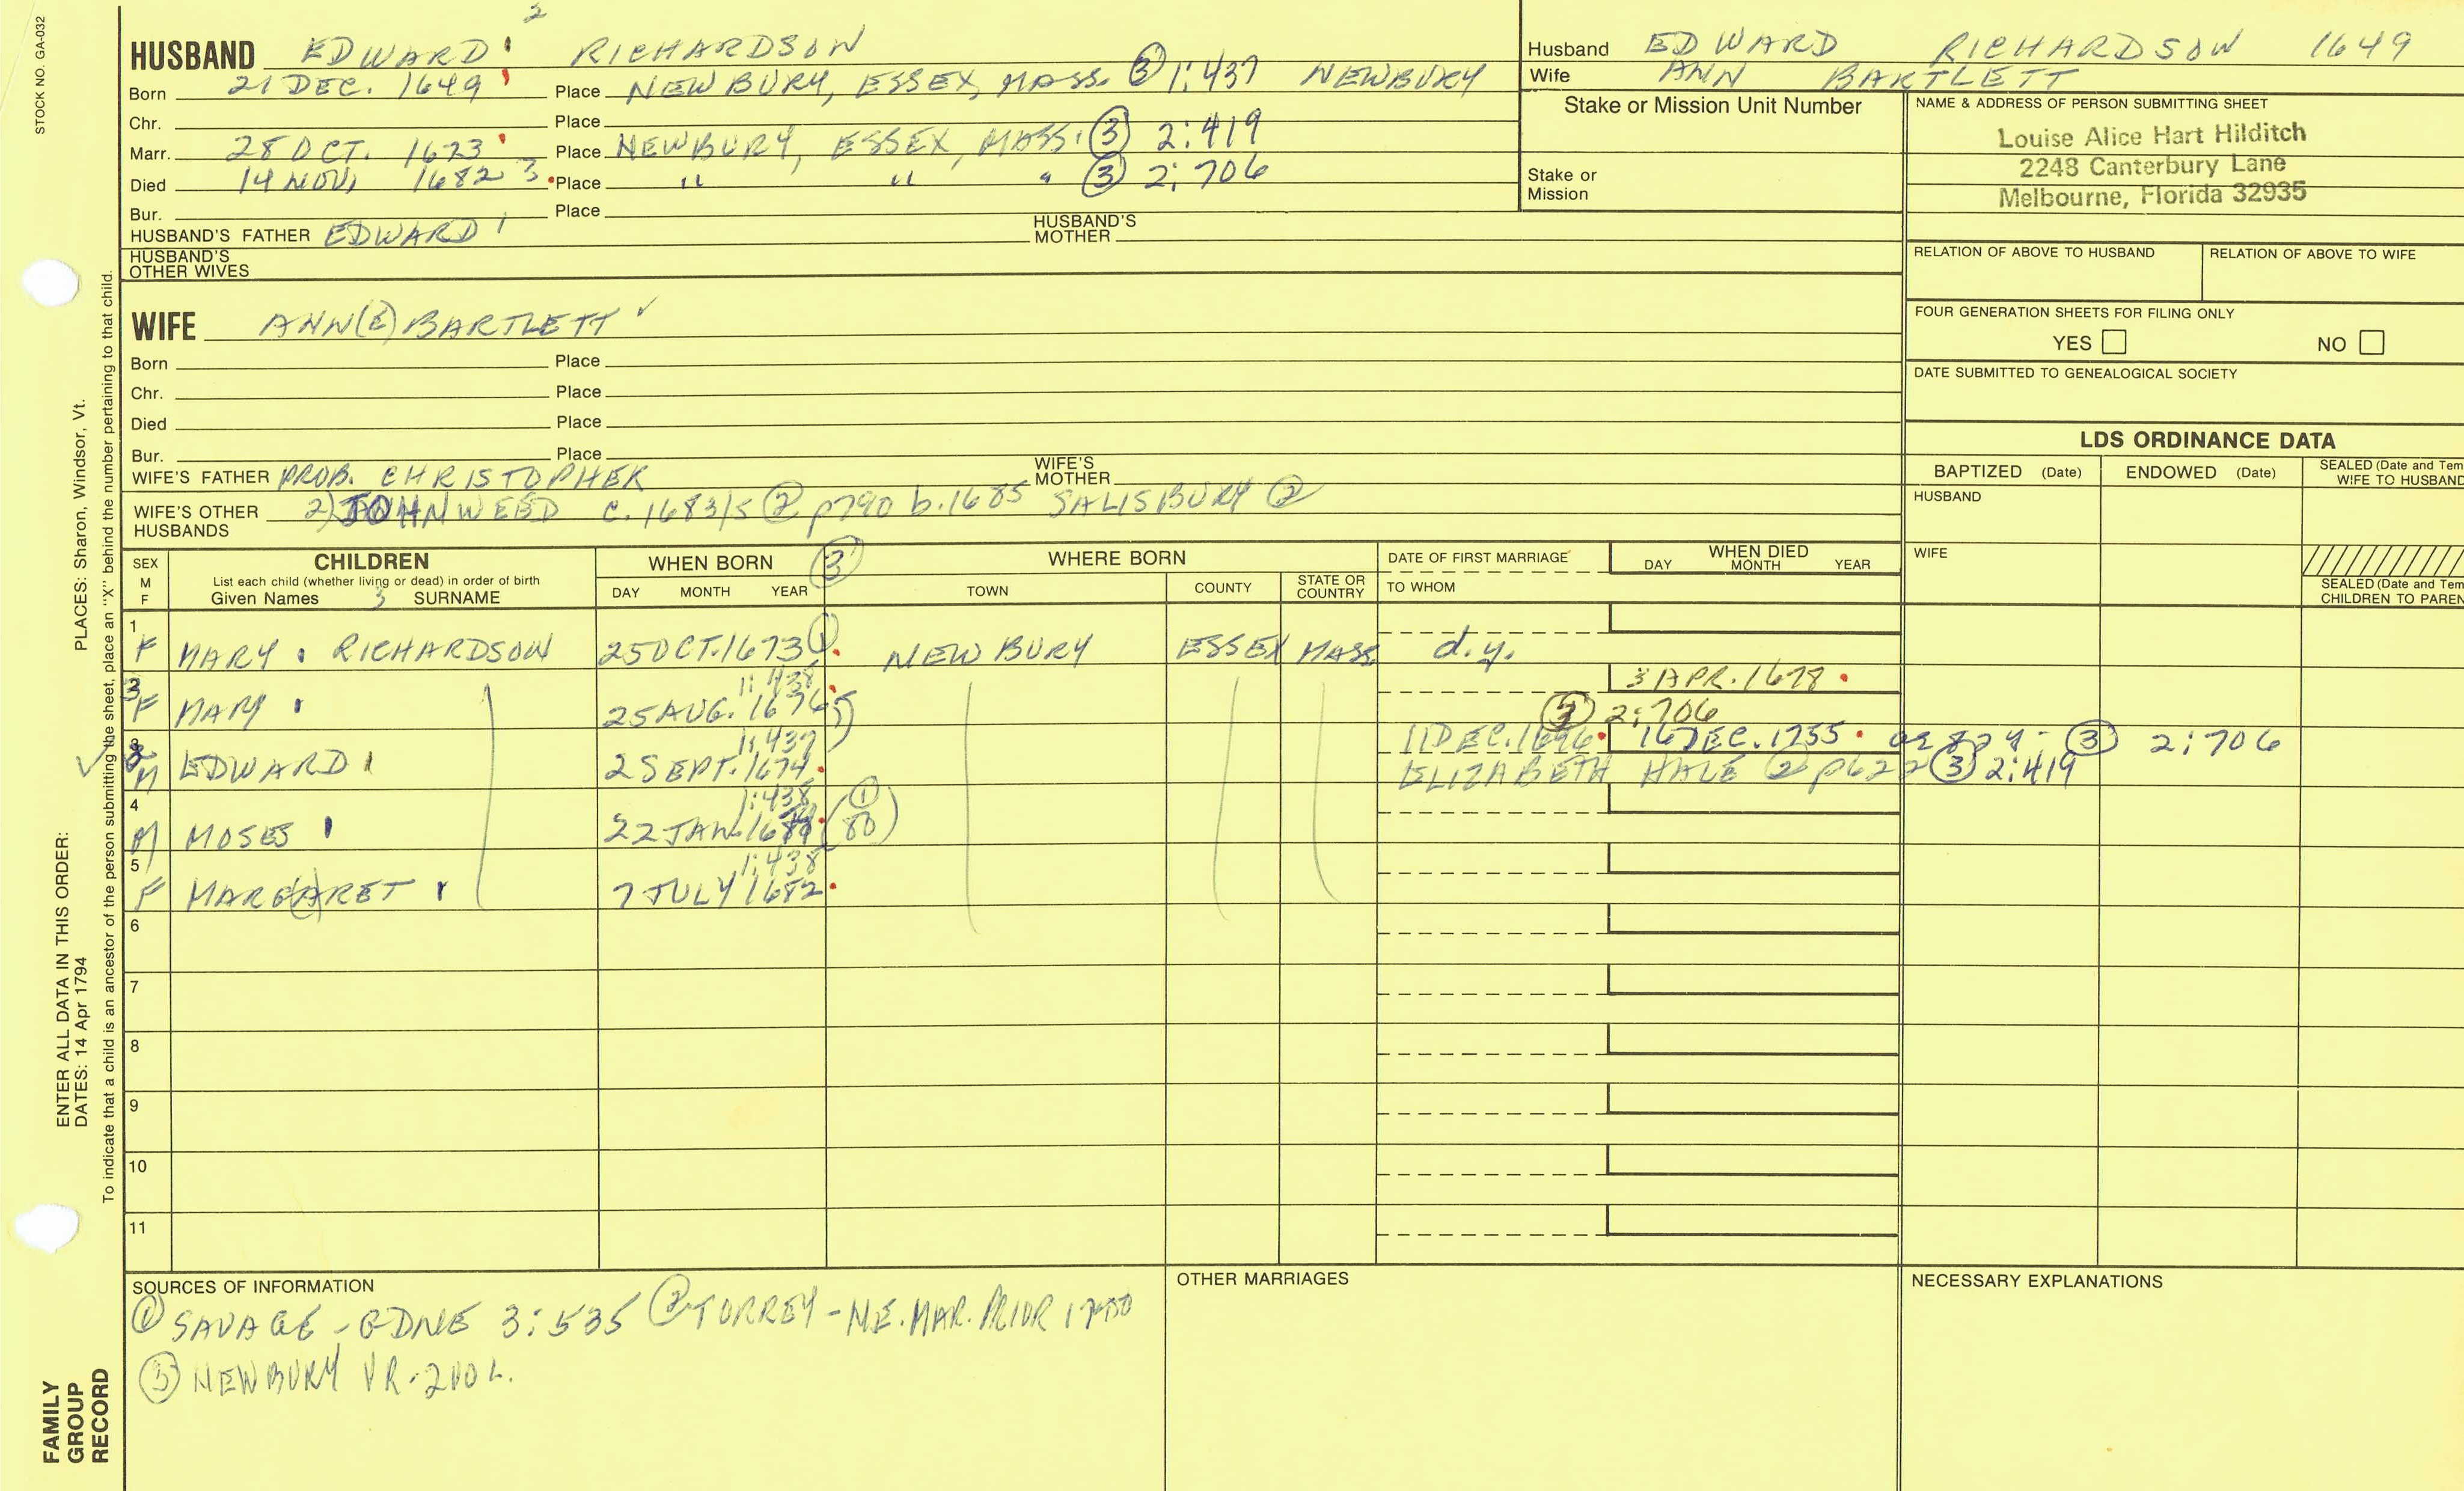 STOCK NO. GA-032
2
HUSBAND EDWARD RICHARDSON
Born 21 DEC. 1649 Place NEWBURY, ESSEX, MASS. (3) 1:437 NEWBURY
Chr. Place
Marr. 28 OCT. 1673 Place NEWBURY, ESSEX, MASS. (3) 2:419
Died 14 NOV, 1682 3 Place " " " (3) 2:706
Bur. Place
HUSBAND'S FATHER EDWARD 1 HUSBAND'S MOTHER
HUSBAND'S OTHER WIVES
WIFE ANN(E) BARTLETT ✓
Born Place
Chr. Place
Died Place
Bur. Place
WIFE'S FATHER PROB. CHRISTOPHER WIFE'S MOTHER
WIFE'S OTHER HUSBANDS 2) JOHN WEED c. 1683/5 (2) p790 b. 1685 SALISBURY (2)
Husband EDWARD RICHARDSON 1649
Wife ANN BARTLETT
Stake or Mission Unit Number
Stake or Mission
NAME & ADDRESS OF PERSON SUBMITTING SHEET
Louise Alice Hart Hilditch
2248 Canterbury Lane
Melbourne, Florida 32935
RELATION OF ABOVE TO HUSBAND RELATION OF ABOVE TO WIFE
FOUR GENERATION SHEETS FOR FILING ONLY
YES NO
DATE SUBMITTED TO GENEALOGICAL SOCIETY
LDS ORDINANCE DATA
BAPTIZED (Date) ENDOWED (Date) SEALED (Date and Tem
WIFE TO HUSBAND
HUSBAND
WIFE
SEALED (Date and Tem
CHILDREN TO PAREN
SEX M F CHILDREN WHEN BORN (3) WHERE BORN DATE OF FIRST MARRIAGE WHEN DIED
List each child (whether living or dead) in order of birth
Given Names 3 SURNAME DAY MONTH YEAR TOWN COUNTY STATE OR COUNTRY TO WHOM DAY MONTH YEAR
1 F MARY RICHARDSON 25 OCT. 1673 (1) NEWBURY ESSEX MASS d.y.
1:438
3 F MARY 25 AUG. 1676 5) 3 APR. 1678
(3) 2:706
1:437
2 M EDWARD 2 SEPT. 1674 11 DEC. 1696 16 DEC. 1755 (3) 2:706
ELIZABETH HALE (2) (3) 2:419
1:438
4 M MOSES 22 JAN. (1) (80)
1:438
5 F MARG(A)RET 7 JULY 1682
6
7
8
9
10
11
SOURCES OF INFORMATION
(1) SAVAGE - GDNE 3:535 (2) TORREY - N.E. MAR. PRIOR 1700
(3) NEWBURY VR
OTHER MARRIAGES
NECESSARY EXPLANATIONS
FAMILY GROUP RECORD
ENTER ALL DATA IN THIS ORDER:
DATES: 14 Apr 1794
PLACES: Sharon, Windsor, Vt.
To indicate that a child is an ancestor of the person submitting the sheet, place an "X" behind the number pertaining to that child.